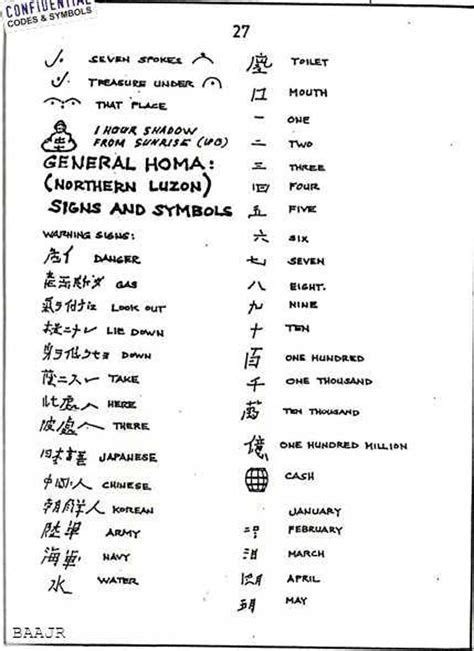 CONFIDENTIAL
CODES & SYMBOLS
27
SEVEN SPOKES
TREASURE UNDER
THAT PLACE
1 HOUR SHADOW
FROM SUNRISE (UP)
GENERAL HOMA:
(NORTHERN LUZON)
SIGNS AND SYMBOLS
WARNING SIGNS:
DANGER
GAS
LOOK OUT
LIE DOWN
DOWN
TAKE
此處 HERE
彼處 THERE
日本 JAPANESE
中国人 CHINESE
朝鮮人 KOREAN
陸軍 ARMY
海軍 NAVY
水 WATER
TOILET
口 MOUTH
一 ONE
二 TWO
三 THREE
四 FOUR
五 FIVE
六 SIX
七 SEVEN
八 EIGHT.
九 NINE
十 TEN
百 ONE HUNDRED
千 ONE THOUSAND
萬 TEN THOUSAND
億 ONE HUNDRED MILLION
CASH
JANUARY
FEBRUARY
MARCH
APRIL
MAY
BAAJR